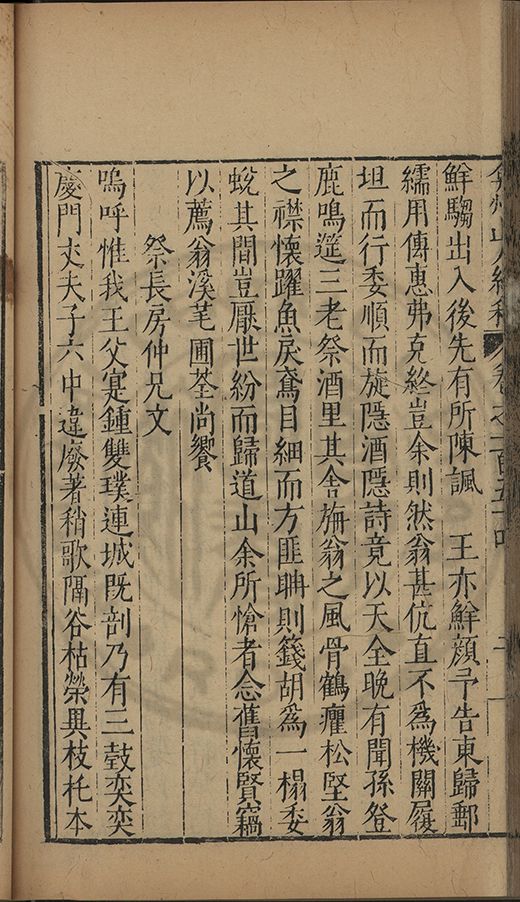 弇州山人續稿 卷之一百五十四
鮮騶出入後先有所陳諷　王亦鮮顔予告東歸郵
繻用傳惠弗克終豈余則然翁甚伉直不爲機關履
坦而行委順而旋隱酒隱詩竟以天全晚有聞孫登
鹿鳴筵三老祭酒里其舍旃翁之風骨鶴癯松堅翁
之襟懷躍魚戾鳶目細而方匪聃則籛胡爲一榻委
蛻其間豈厭世紛而歸道山余所愴者念舊懷賢竊
以薦翁溪芼圃荃尚饗
祭長房仲兄文
嗚呼惟我王父寔鍾雙璞連城既剖乃有三瑴奕奕
慶門丈夫子六中違廢著稍歌隔谷枯榮異枝托本